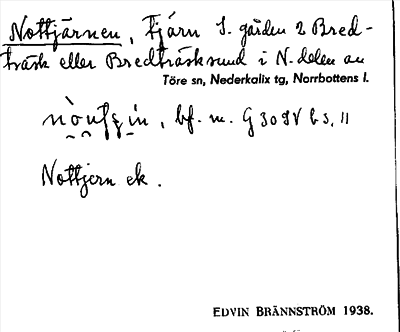 Nottjärnen, Tjärn S. gården 2 Bred-
träsk eller Bredträsksund i N. delen av
Töre sn, Nederkalix tg, Norrbottens l.
bf. m.
Nottjern ek.
EDVIN BRÄNNSTRÖM 1938.